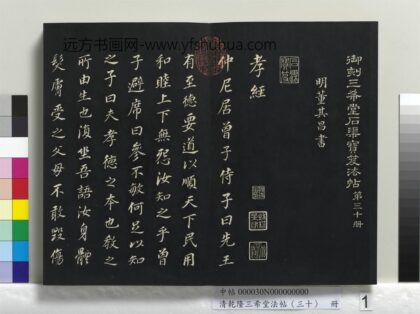 远方书画网-www.yfshuhua.com
御刻三希堂石渠寶笈法帖第三十册
明董其昌書
孝經
仲尼居曾子侍子曰先王
有至德要道以順天下民用
和睦上下無怨汝知之乎曾
子避席曰參不敏何足以知
之子曰夫孝德之本也教之
所由生也復坐吾語汝身體
髮膚受之父母不敢毀傷
中帖 000030N000000000
清乾隆三希堂法帖（三十） 冊
1